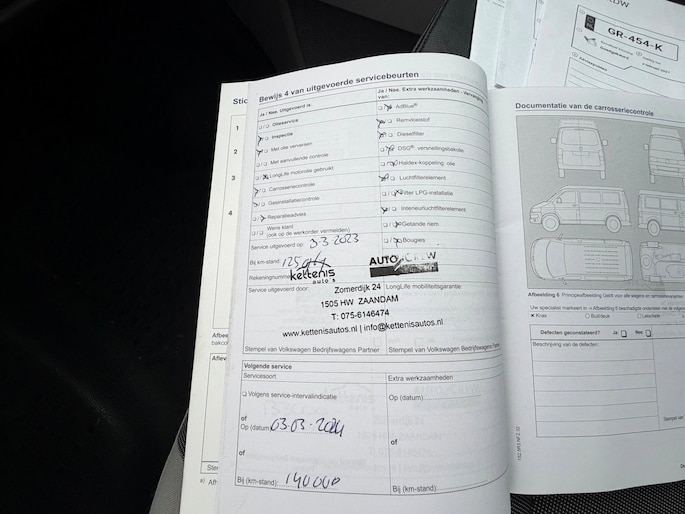 Bewijs 4 van uitgevoerde servicebeurten
Ja / Nee. Uitgevoerd is:
Olieservice
Inspectie
Met olie verversen
Met aanvullende controle
LongLife motorolie gebruikt
Carrosseriecontrole
Gasinstallatiecontrole
Reparatieadvies
Wens klant
(ook op de werkorder vermelden)
Service uitgevoerd op: 3-3-2023
Bij km-stand:
Rekeningnummer
Service uitgevoerd door:
Ja / Nee. Extra werkzaamheden - Vervanging
van:
AdBlue®
Remvloeistof
Dieselfilter
DSG®- versnellingsbakolie
Haldex-koppeling: olie
Luchtfilterelement
Filter LPG-installatie
Interieurluchtfilterelement
Getande riem
Bougies
kettenis
auto's
AUTO CREW
LongLife mobiliteitsgarantie
Zomerdijk 24
1505 HW ZAANDAM
T: 075-6146474
www.kettenisautos.nl | info@kettenisautos.nl
Stempel van Volkswagen Bedrijfswagens Partner
Stempel van Volkswagen Bedrijfswagens Partner
Volgende service
Servicesoort
Volgens service-intervalindicatie
of
Op (datum) 03-03-2024
of
Bij (km-stand): 140000
Extra werkzaamheden
Op (datum)
of
Bij (km-stand):
GR-454-K
Documentatie van de carrosseriecontrole
Afbeelding 6 Principeafbeelding Geldt voor alle wagens en carrosserievarianten
Uw specialist markeert in
Kras
Buil/deuk
Defecten geconstateerd? Ja Nee
Beschrijving van de defecten:
Stempel van
1
2
3
4